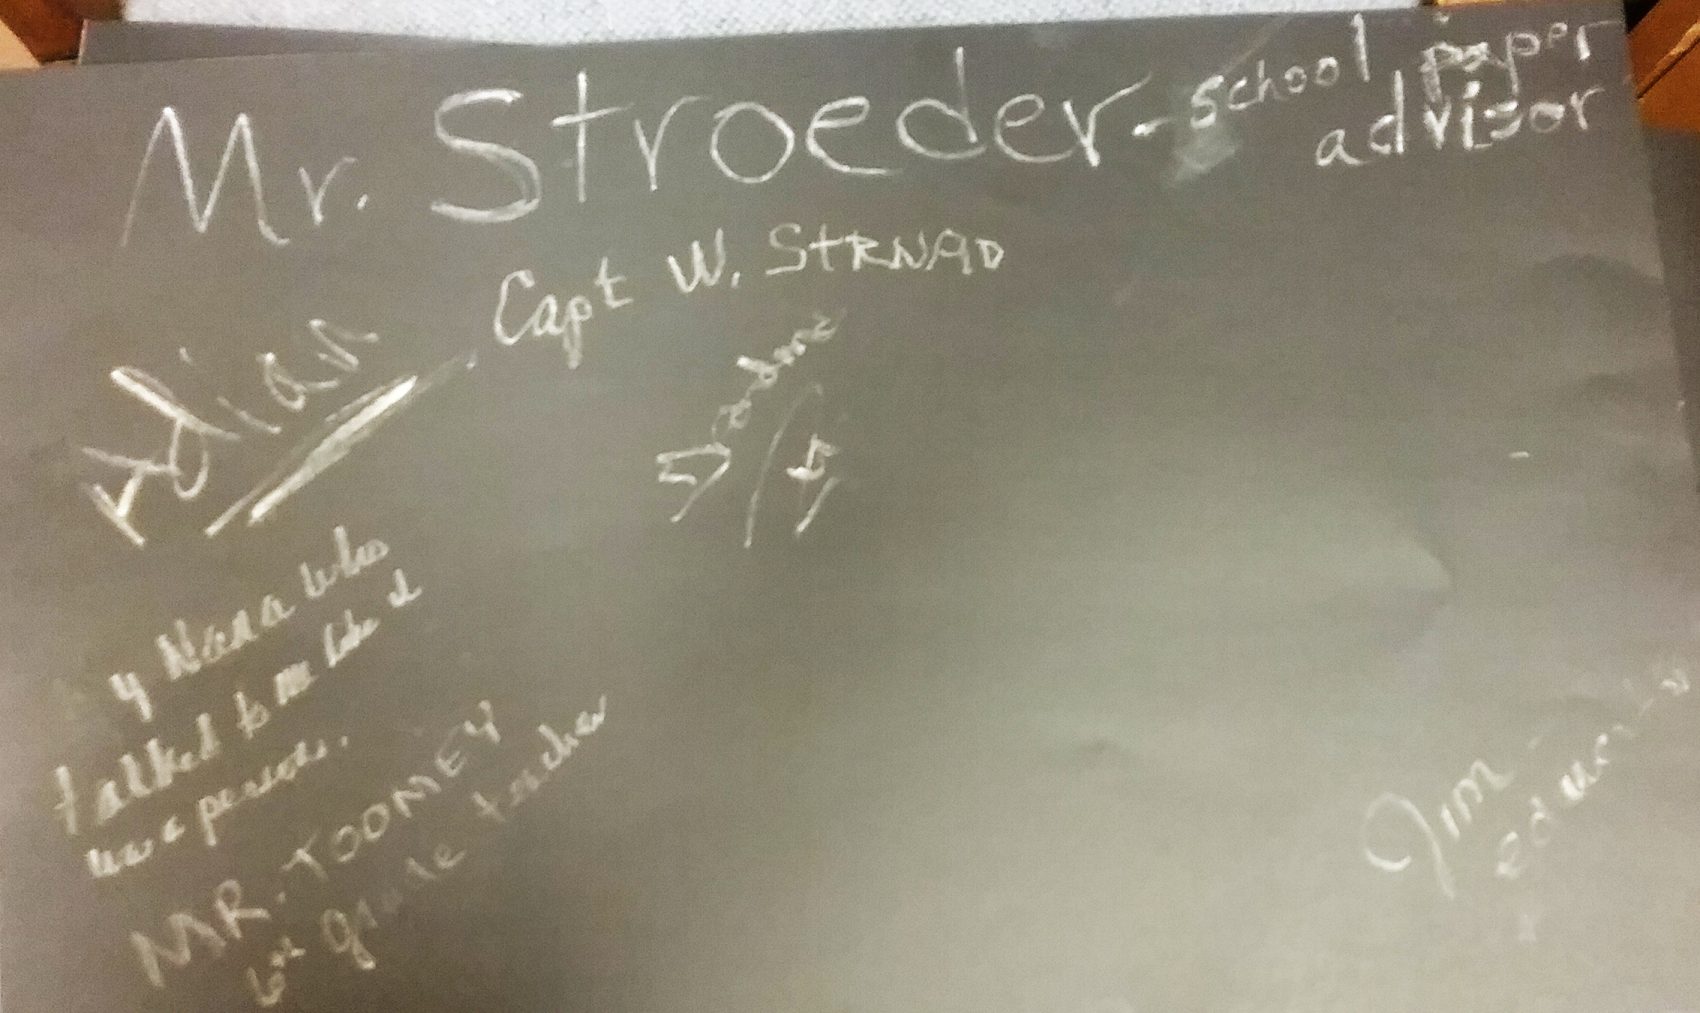 Mr. Stroeder - school paper
advisor
Capt W. STRNAD
Adian
y Nana who
talked to me like I
was a person.
MR. TOOMEY
6th grade teacher
Jim